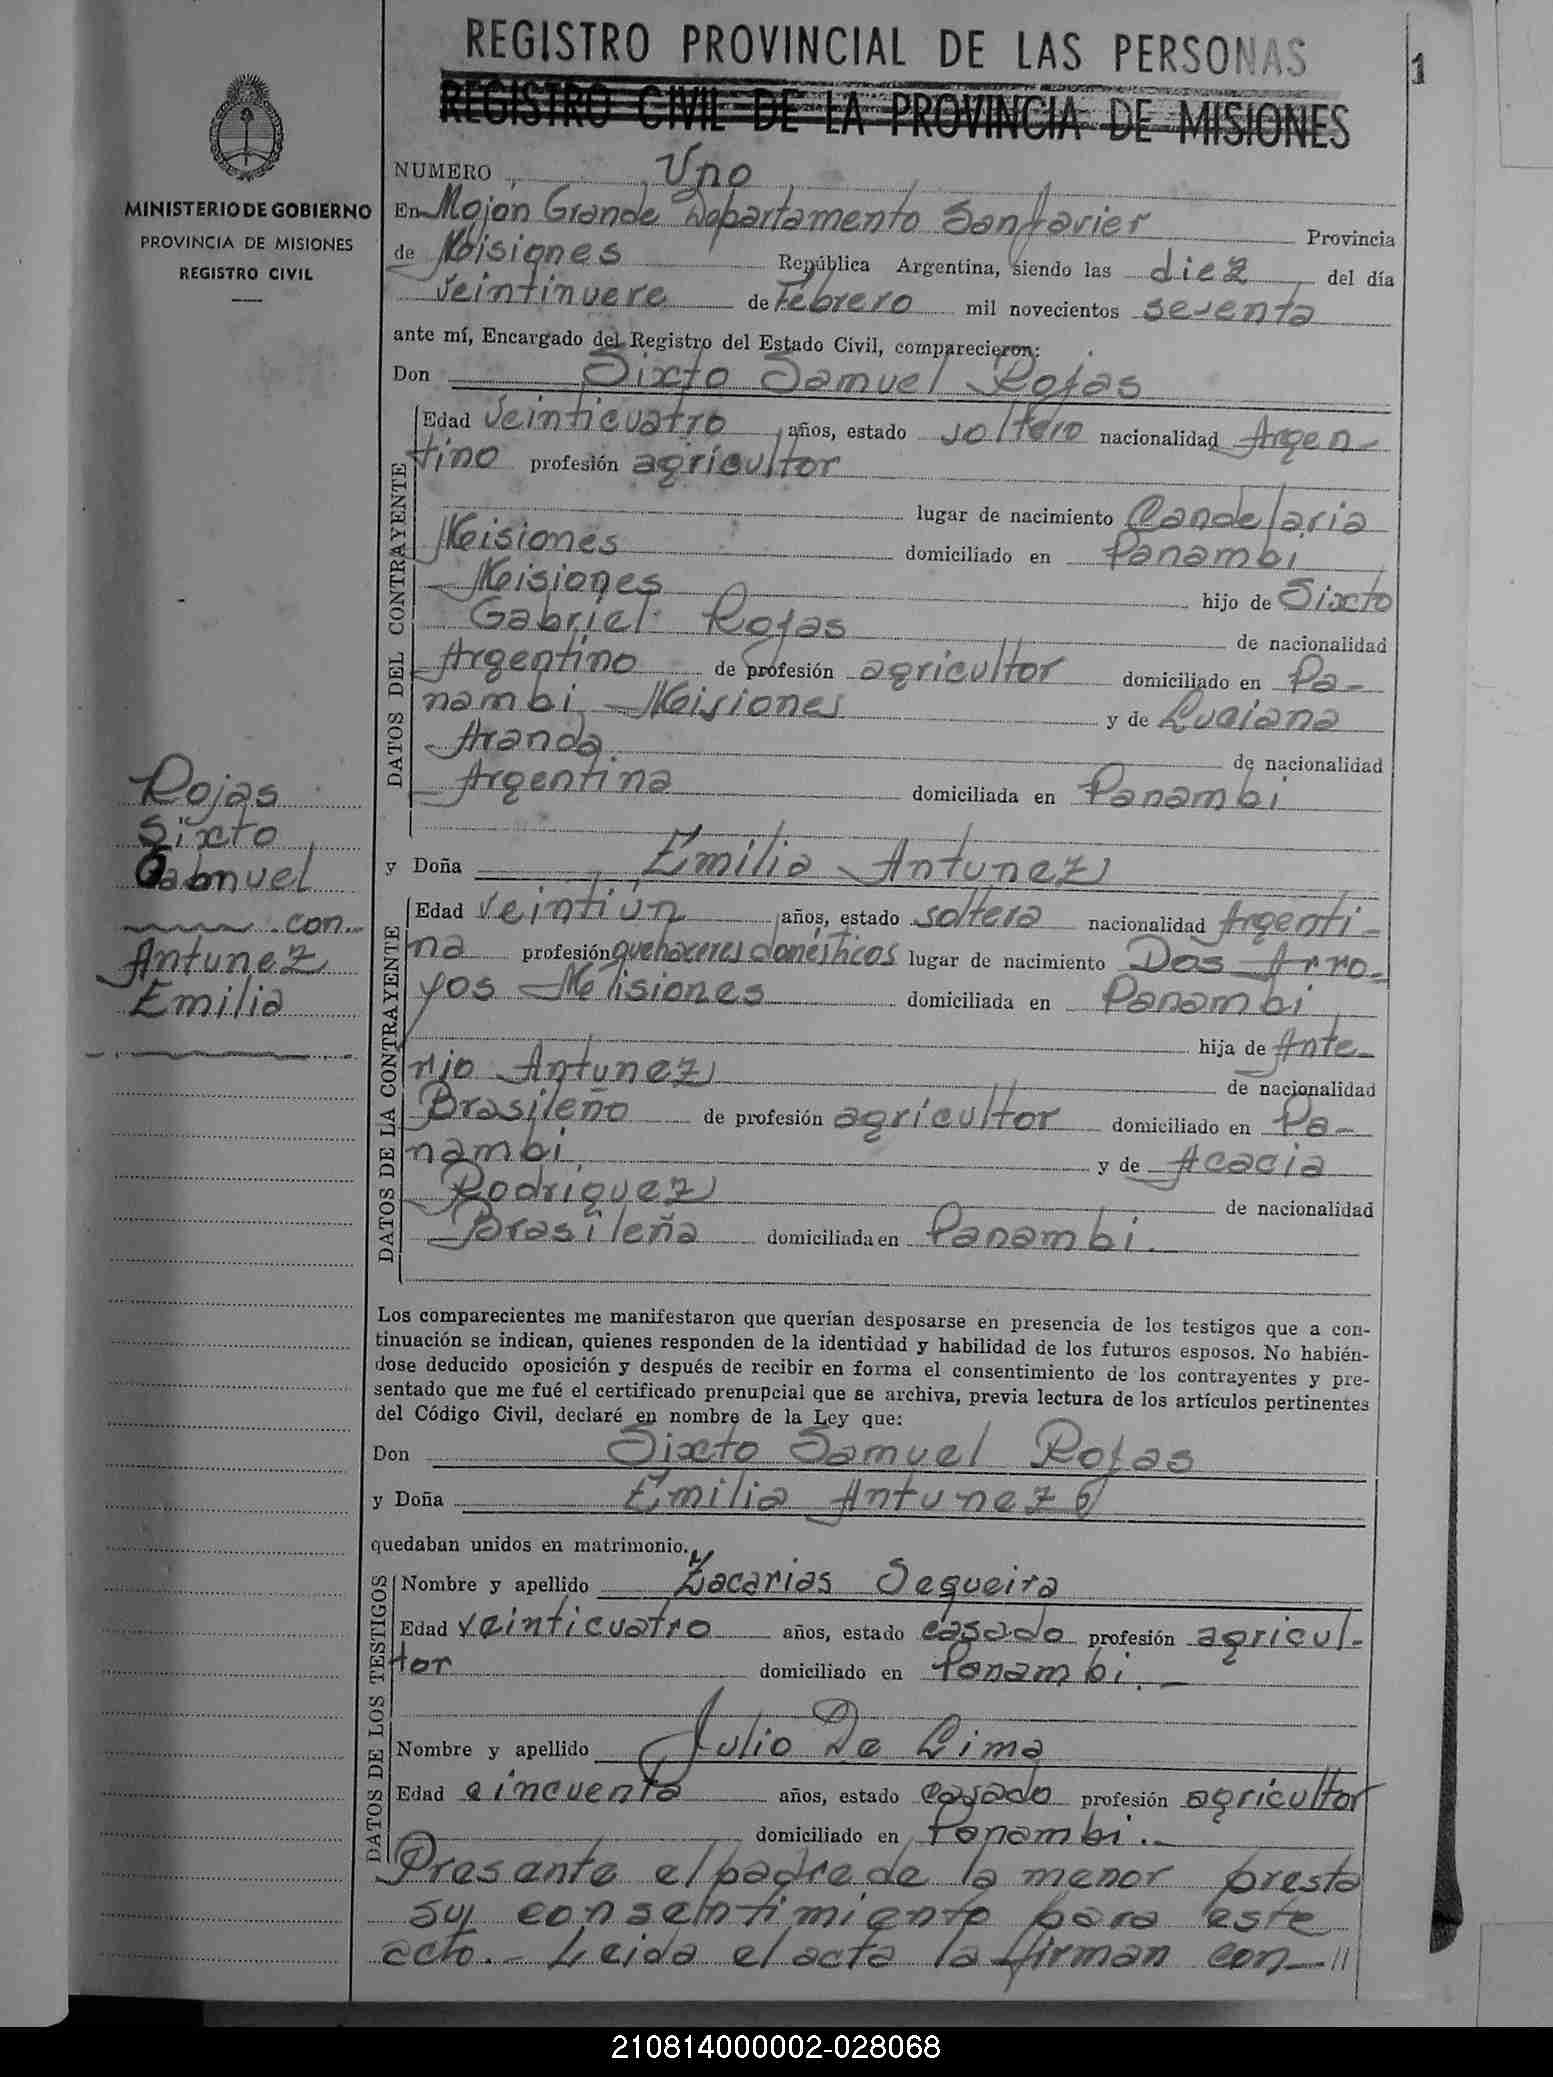 REGISTRO PROVINCIAL DE LAS PERSONAS
1
REGISTRO CIVIL DE LA PROVINCIA DE MISIONES
MINISTERIO DE GOBIERNO
PROVINCIA DE MISIONES
REGISTRO CIVIL
NUMERO Uno
En Mojon Grande Departamento San Javier Provincia
de Misiones República Argentina, siendo las diez del día
veintinueve de Febrero mil novecientos
ante mí, Encargado del Registro del Estado Civil, comparecieron:
Don Sixto Samuel Rojas
DATOS DEL CONTRAYENTE
Edad veinticuatro años, estado soltero nacionalidad Argen-
tino profesión agricultor
lugar de nacimiento Candelaria
Misiones domiciliado en Panambi
Misiones hijo de Sixto
Gabriel Rojas de nacionalidad
Argentino de profesión agricultor domiciliado en Pa-
nambi Misiones y de Luciana
Aranda de nacionalidad
Argentina domiciliada en Panambi
Rojas
Sixto
con
Antunez
Emilia
y Doña Emilia Antunez
DATOS DE LA CONTRAYENTE
Edad veintiún años, estado soltera nacionalidad Argenti-
na profesión quehaceres domésticos lugar de nacimiento Dos Arro-
yos Misiones domiciliada en Panambi
hija de Ante-
rio Antunez de nacionalidad
Brasileño de profesión agricultor domiciliado en Pa-
nambi y de Acacia
Rodriguez de nacionalidad
Brasileña domiciliada en Panambi.
Los comparecientes me manifestaron que querían desposarse en presencia de los testigos que a con-
tinuación se indican, quienes responden de la identidad y habilidad de los futuros esposos. No habién-
dose deducido oposición y después de recibir en forma el consentimiento de los contrayentes y pre-
sentado que me fué el certificado prenupcial que se archiva, previa lectura de los artículos pertinentes
del Código Civil, declaré en nombre de la Ley que:
Don Sixto Samuel Rojas
y Doña Emilia Antunez
quedaban unidos en matrimonio.
DATOS DE LOS TESTIGOS
Nombre y apellido Zacarias Sequeira
Edad veinticuatro años, estado casado profesión agricul-
tor domiciliado en Panambi.-
Nombre y apellido Julio De Lima
Edad cincuenta años, estado casado profesión agricultor
domiciliado en Panambi.-
Presente el padre de la menor presta
su consentimiento para este
acto.- Leida el acta la firman con-//
210814000002-028068